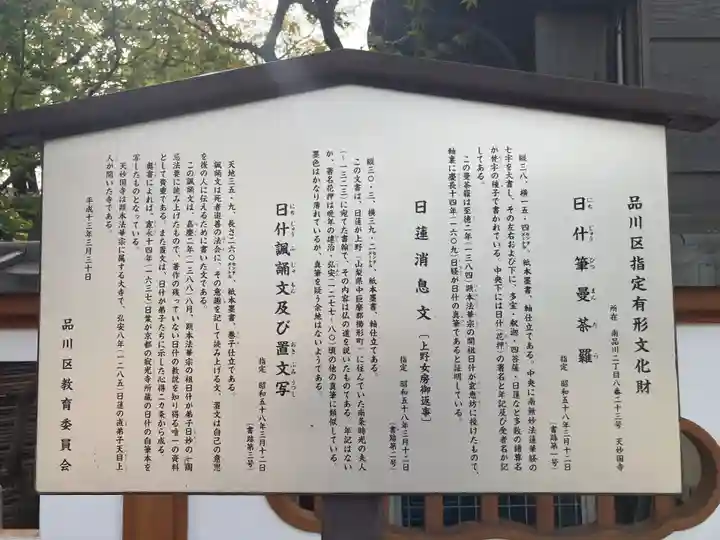 品川区指定有形文化財
所在 南品川二丁目八番二十三号 天妙国寺
日什筆曼荼羅
にちじゅうひつまんだら
指定 昭和五十八年三月十二日
(書跡第一号)
縦三八・、横一五・四センチメートル、紙本墨書、軸仕立である。中央に南無妙法蓮華経の
七字を大書し、その左右および下に、多宝・釈迦・四菩薩・日蓮など多数の諸尊名
が梵字の種子で書かれている。中央下には日什(花押)の署名と年記及び受者名が記
してある。
この曼荼羅は至徳二年(一三八四)顕本法華宗の開祖日什が玄恵坊に授けたもので、
軸裏に慶長十四年(一六〇九)日経が日什の真筆であると証明している。
日蓮消息文〔上野女房御返事〕
指定 昭和五十八年三月十二日
(書跡第二号)
縦三〇・三、横三九・二センチメートル、紙本墨書、軸仕立である。
この文書は、日蓮が上野(山梨県中巨摩郡櫛形町)に住んでいた南条時光の夫人
(—一三二三)に宛てた書翰で、その内容は仏の道を説いたものである。年記はない
が、署名花押は晩年の建治・弘安(一二七七・八〇)頃の他の真筆に類似している。
墨色はかなり薄れているが、真筆を疑う余地はないようである。
日什諷誦文及び置文写
にちじゅうふじゅもん おきぶみうつし
指定 昭和五十八年三月十二日
(書跡第三号)
天地三五・九、長さ二六〇センチメートル、紙本墨書、巻子仕立である。
諷誦文は死者追善の法会に、その意趣を記して読み上げる文、置文は自己の意思
を後の人に伝えるために書いた文である。
この諷誦文は、嘉慶二年(一三八八)八月、顕本法華宗の祖日什が弟子日妙の一周
忌法要に読み上げたもので、著作の残っていない日什の教説を知り得る唯一の資料
として貴重である。また置文は、日什が弟子たちに示した心得二カ条から成る
奥書によれば、寛永十四年(一六三七)日賞が京都の寂光寺所蔵の日什の自筆本を
写したものとなっている。
天妙国寺は顕本法華宗に属する大寺で、弘安八年(一二八五)日蓮の直弟子天目上
人が開いた寺である。
平成十三年三月三十日
品川区教育委員会